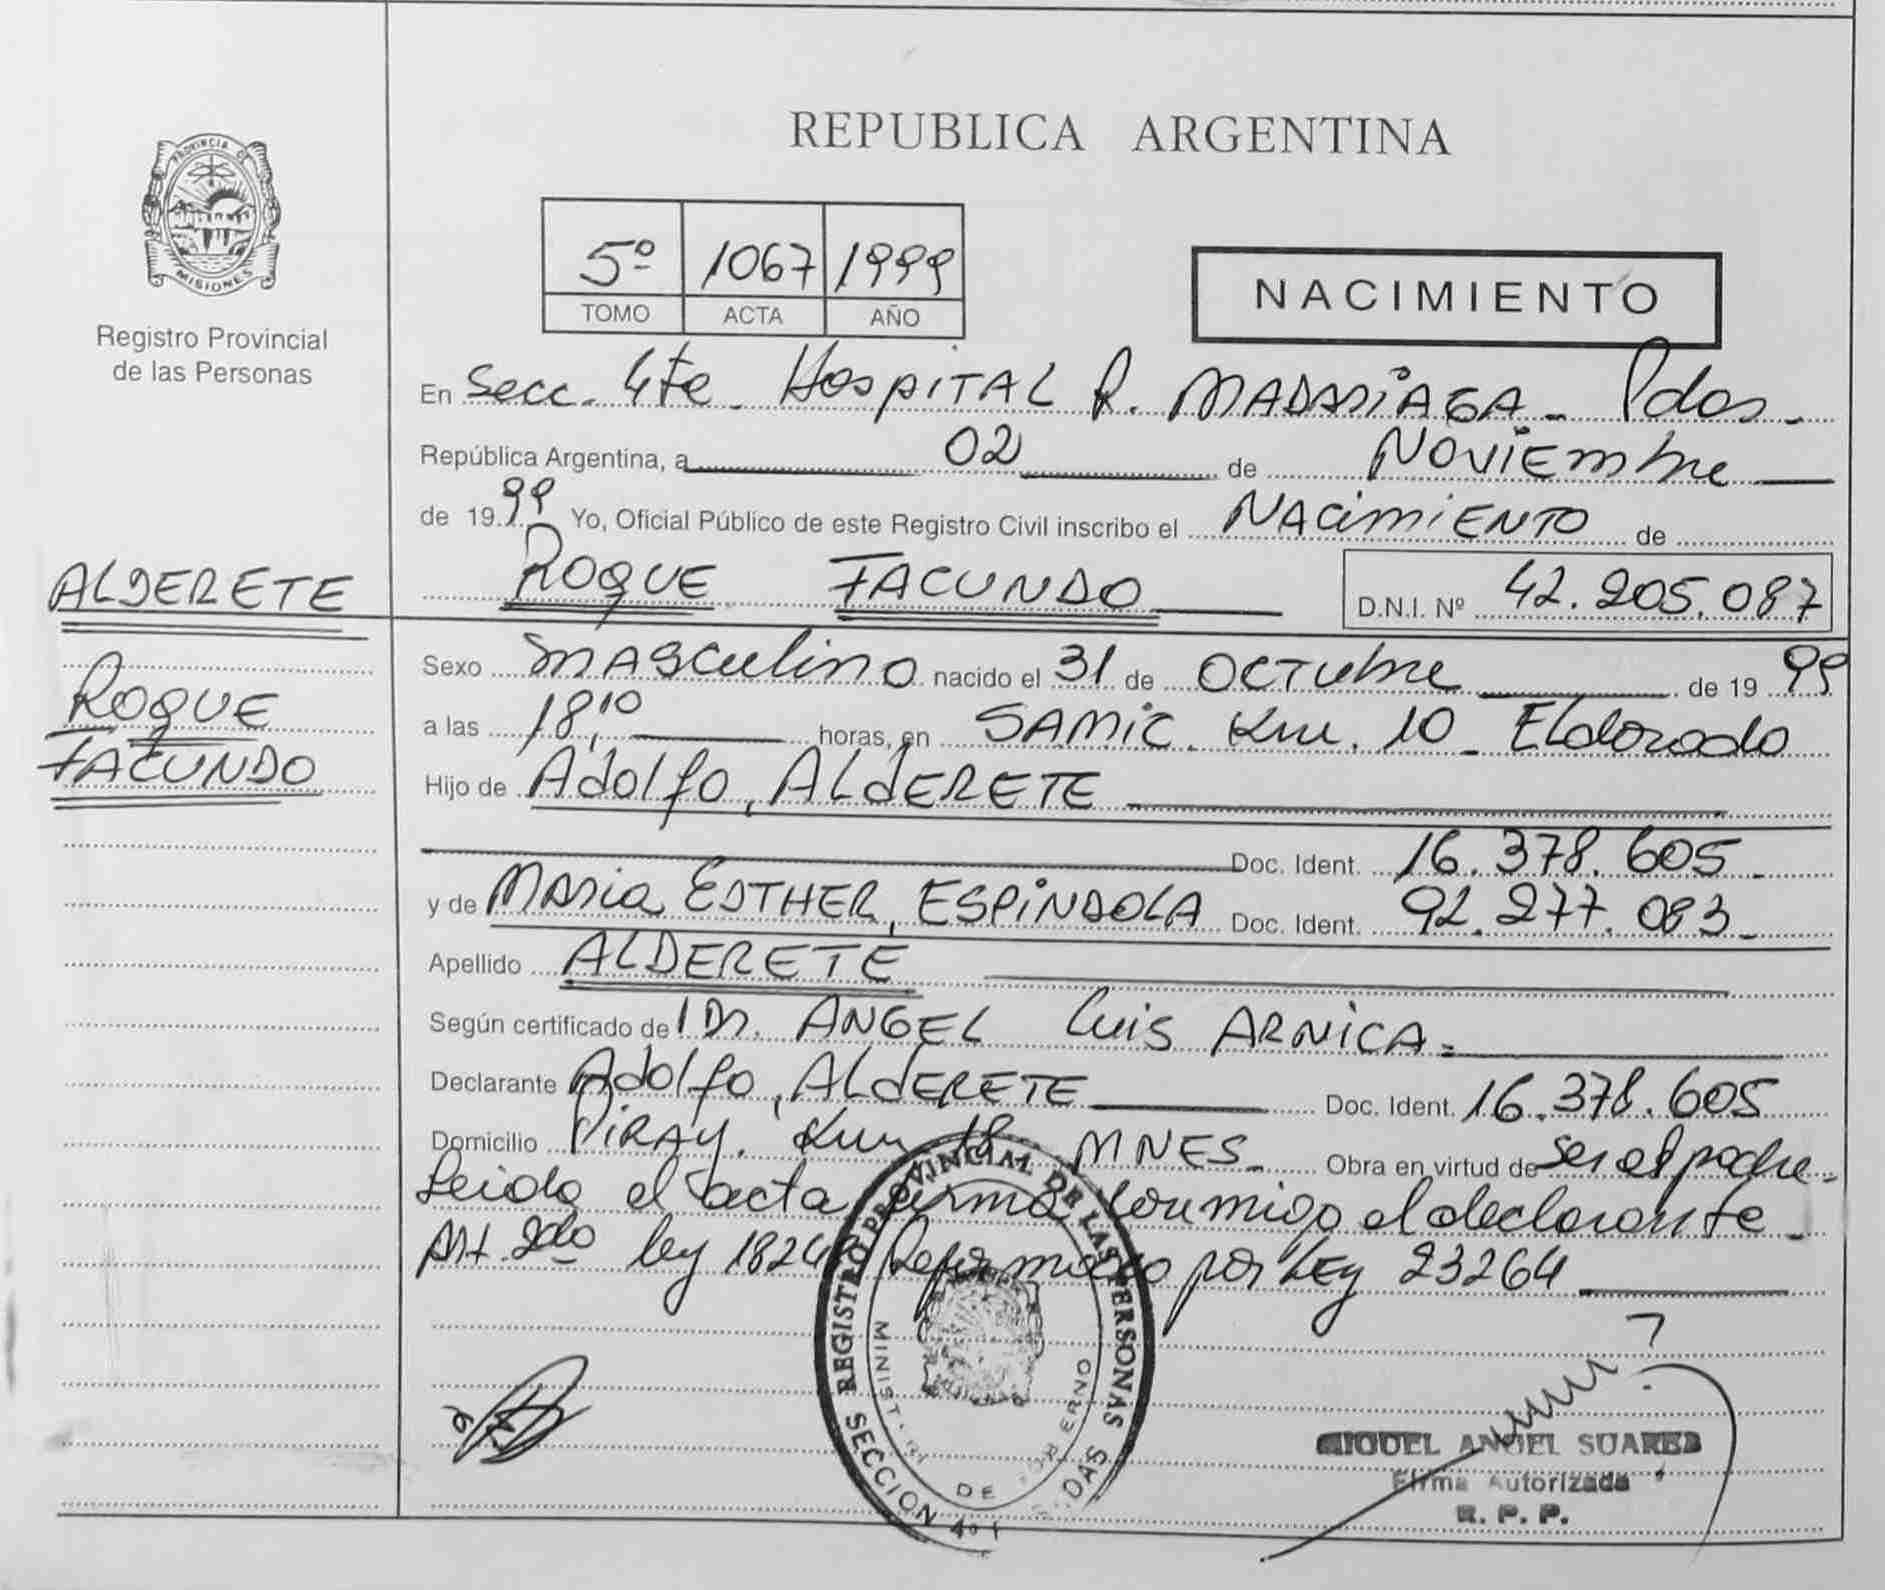 REPUBLICA ARGENTINA
PROVINCIA DE
MISIONES
Registro Provincial
de las Personas
5º 1067 1999
TOMO ACTA AÑO
NACIMIENTO
En Secc. 4ta - Hospital R. MADARiAGA - Pdas -
República Argentina, a 02 de NOViEmbre
de 1999 Yo, Oficial Público de este Registro Civil inscribo el NAcimiENTO de
ALDERETE
ROQUE FACUNDO D.N.I. Nº 42.205.087
Sexo mAsculino nacido el 31 de OCTubre de 1999
ROQUE
FACUNDO
a las 18,10 horas, en SAMIC. Km. 10 - Eldorado
Hijo de Adolfo, ALdERETE
Doc. Ident. 16.378.605-
y de Maria ESTHER, ESPiNDOLA Doc. Ident. 92.277.083-
Apellido ALDERETE
Según certificado del Dr. ANGEL Luis ARNiCA-
Declarante Adolfo, ALdERETE Doc. Ident. 16.378.605
Domicilio PiRAY. Km 18 MNES- Obra en virtud de ser el padre.
Leida el acta firma conmigo el declarante -
Art. 2do ley 18248 Reformado por LEy 23264
REGISTRO PROVINCIAL DE LAS PERSONAS
MINIST. DE GOBIERNO
SECCION 4º
MIGUEL ANGEL SUAREZ
Firma Autorizada
R. P. P.